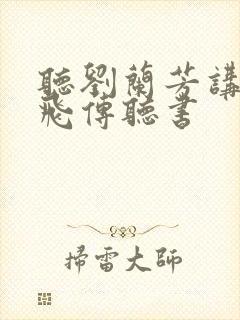 聽劉蘭芳講
飛傳聽書
掃雷大師